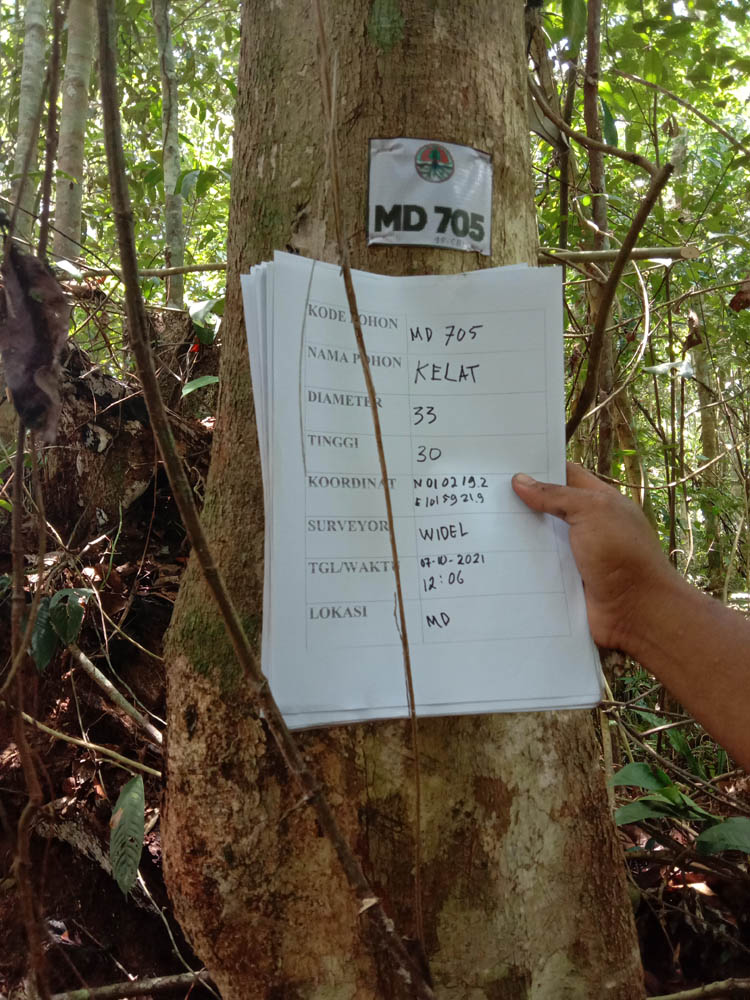 MD 705
KODE POHON MD 705
NAMA POHON KELAT
DIAMETER 33
TINGGI 30
KOORDINAT N 01 02 19.2
E 101 59 21.9
SURVEYOR WIDEL
TGL/WAKTU 07-10-2021
12:06
LOKASI MD